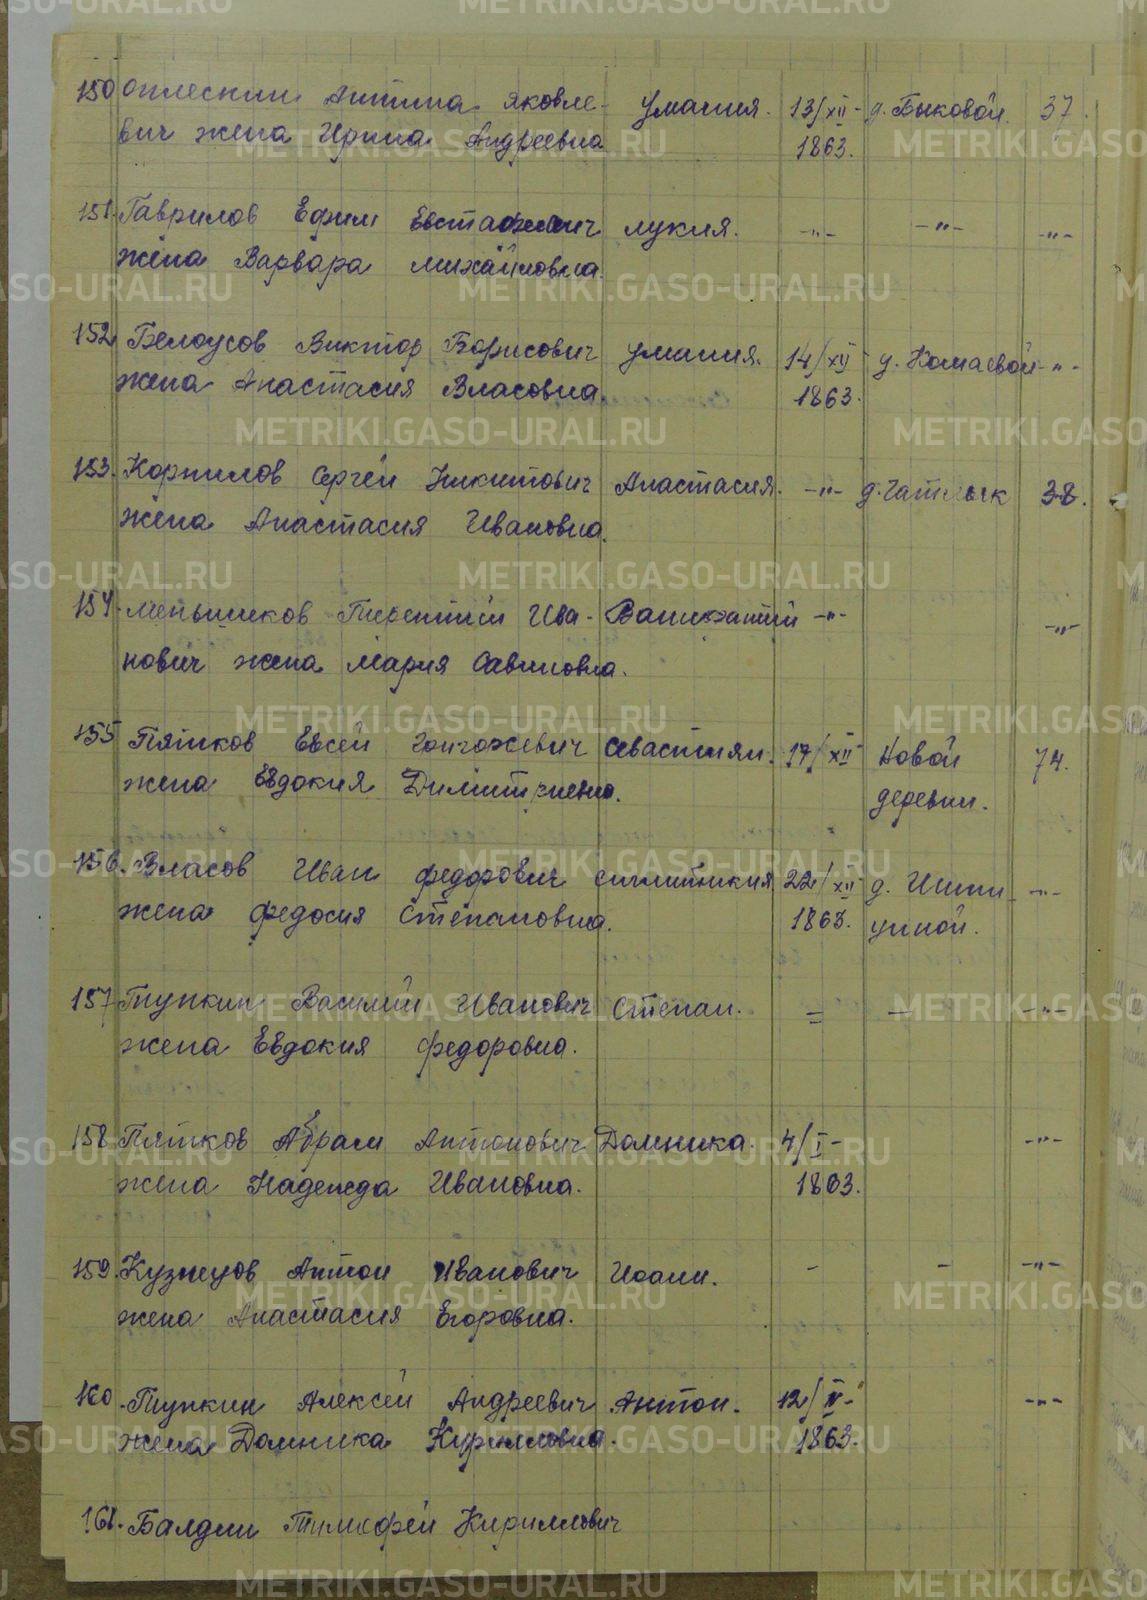 150 Оплеснин Антипа Яковле- Умания. 13/XII- д. Быковой. 37.
вич жена Ирина Андреевна 1863.
151. Гаврилов Ефим Евстафиевич Лукия. -"- -"- -"-
жена Варвара Михайловна.
152 Белоусов Виктор Борисович Умания. 14/XII д. Комаевой -"-
жена Анастасия Власовна. 1863.
153. Корнилов Сергей Никитович Анастасия. -"- д. Чатлык 38.
жена Анастасия Ивановна.
154. Меньшиков Терентий Ива- -"- -"-
нович жена Мария Савиновна.
155 Пятков Евсей Севастиян. 17/XII Новой 74.
жена Евдокия деревни.
156. Власов Иван Федорович 22/XII д. -"-
жена Федосия Степановна. 1863.
157 Тупкин Василий Иванович Степан. = — -"-
жена Евдокия Федоровна.
158 Пятков Абрам Антонович Домника. 4/I- -"-
жена Надежда Ивановна. 1863.
159. Кузнецов Антон Иванович Иоанн. - - -"-
жена Анастасия Егоровна.
160. Тупкин Алексей Андреевич Антон. 12/IV- -"-
жена Домника Кирилловна. 1863.
161. Балдин Тимофей Кириллович
METRIKI.GASO-URAL.RU